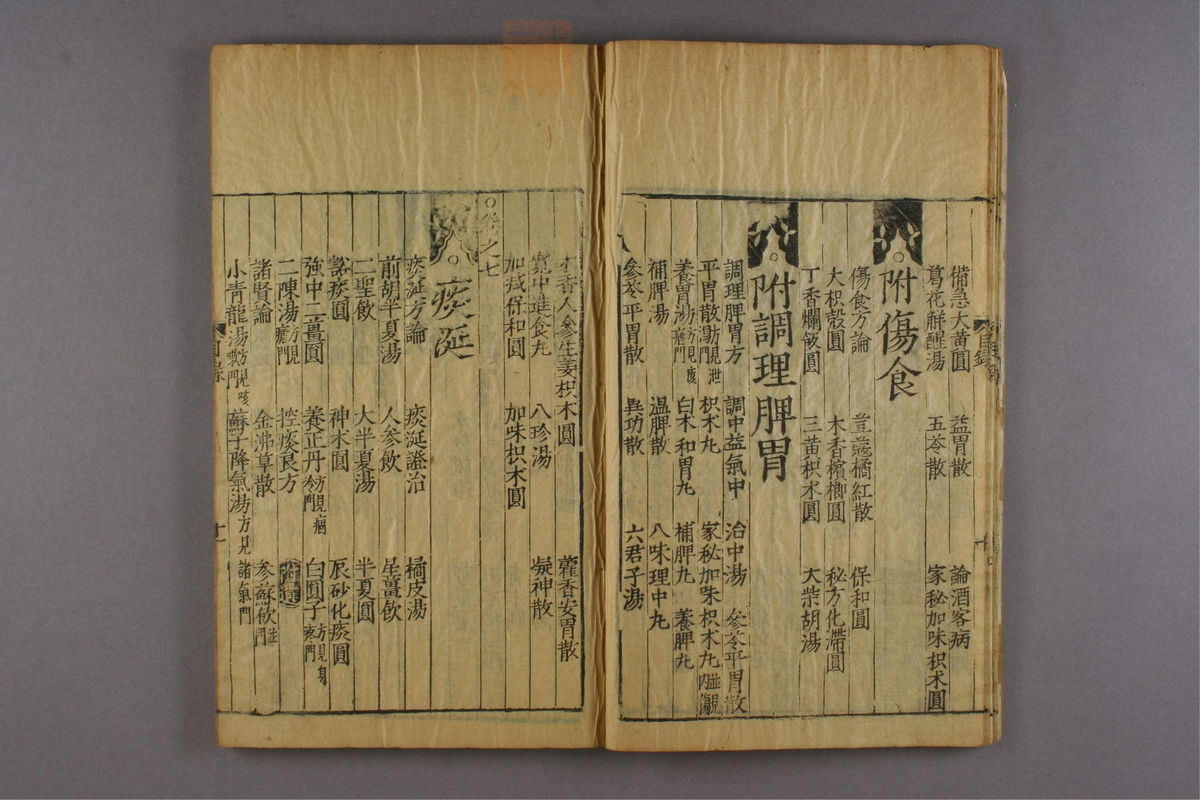 備急大黃圓 益胃散 論酒客病
葛花解醒湯 五苓散 家秘加味枳朮圓
附傷食
傷食方論 荳蔻橘紅散 保和圓
大枳殼圓 木香檳榔圓 秘方化滯圓
丁香爛飯圓 三黃枳朮圓 大柴胡湯
附調理脾胃
調理脾胃方 調中益氣中 治中湯 參苓平胃散
平胃散湯 枳朮丸 家秘加味枳朮丸
養胃湯 白朮和胃丸 補脾丸 養脾丸
補脾湯 溫脾散 八味理中丸
參苓平胃散 異功散 六君子湯
木香人參生姜枳朮圓 藿香安胃散
寬中進食丸 八珍湯 凝神散
加減保和圓 加味枳朮圓
卷之七
痰涎
痰涎方論 痰涎證治 橘皮湯
前胡半夏湯 人參飲 星薑飲
二聖飲 大半夏湯 半夏圓
豁痰圓 神朮圓 辰砂化痰圓
強中二薑圓 養正丹 白圓子
二陳湯 控痰良方
諸賢論 金沸草散 參蘇飲
小青龍湯 蘇子降氣湯方見諸氣門
目錄 十一